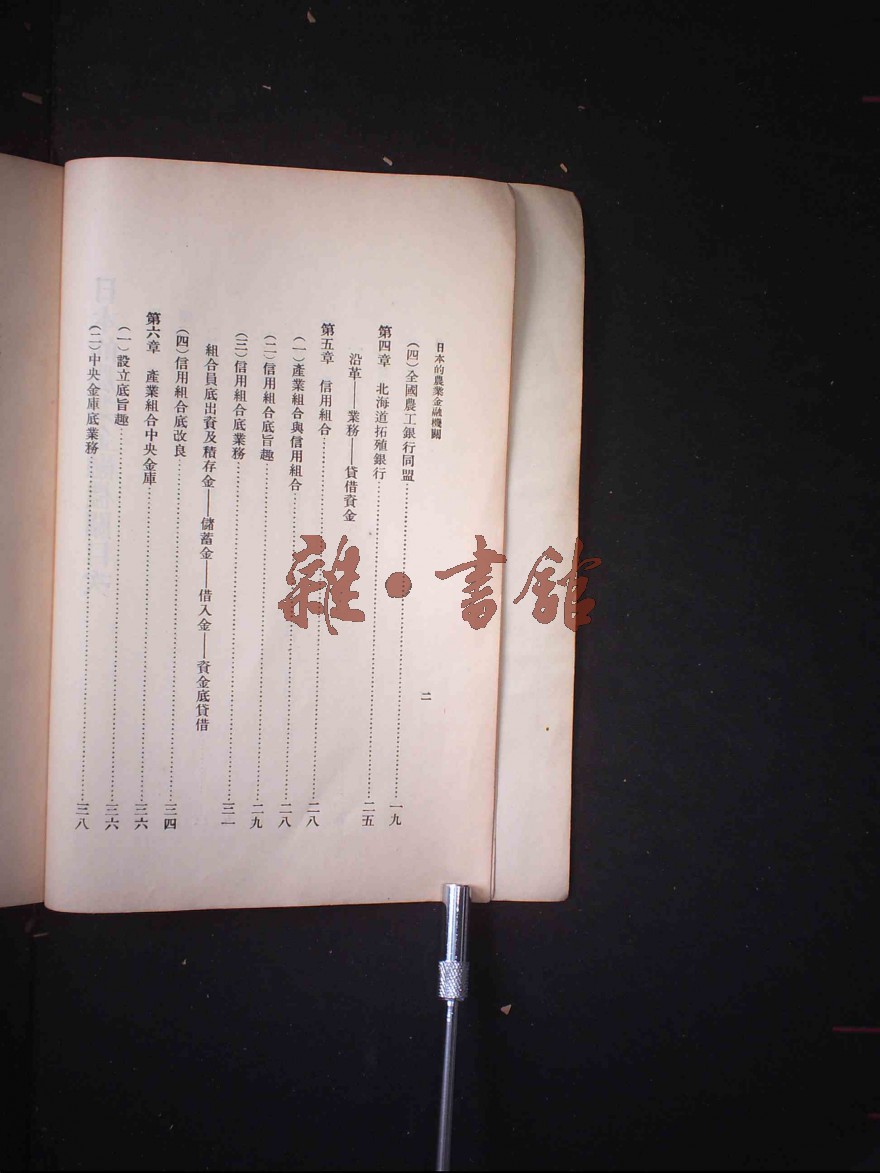 日本的農業金融機關
二
(四)全國農工銀行同盟…………一九
第四章　北海道拓殖銀行…………二五
沿革——業務——貸借資金
第五章　信用組合…………二八
(一)產業組合與信用組合…………二八
(二)信用組合底旨趣…………二九
(三)信用組合底業務…………三一
組合員底出資及積存金——儲蓄金——借入金——資金底貸借
(四)信用組合底改良…………三四
第六章　產業組合中央金庫…………三六
(一)設立底旨趣…………三六
(二)中央金庫底業務…………三八
雜·書館